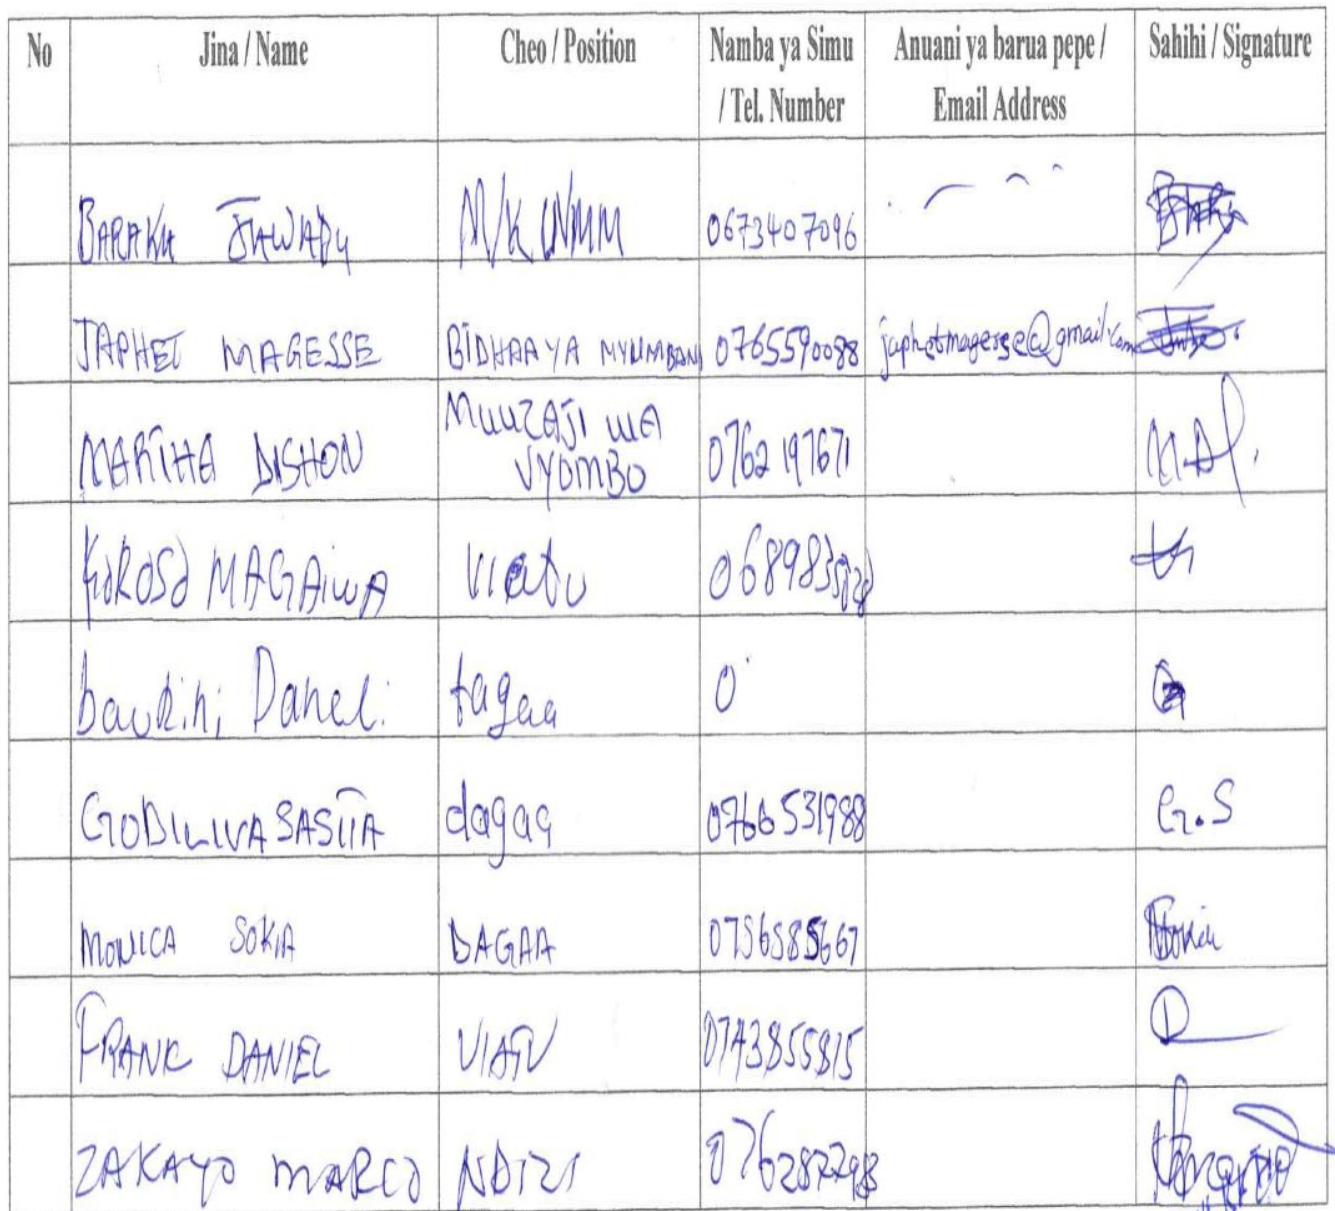 No Jina / Name Cheo / Position Namba ya Simu / Tel. Number Anuani ya barua pepe / Email Address Sahihi / Signature
BARAKA JAWADU M/K UWMM 0673407096
JAPHET MAGESSE BIDHAA YA NYUMBANI 0765590088 japhetmagesse@gmail.com
MARTHA DISHON MUUZAJI WA VYOMBO 0762197671 M.D.
MAGAIWA viatu
Daneli tagaa 0
GODILIVA SASITA dagaa 0766531988 G.S
MONICA SOKIA DAGAA 0756585667
FRANK DANIEL VIATU 0743855815
ZAKAYO MARCO NDIZI 0762877298